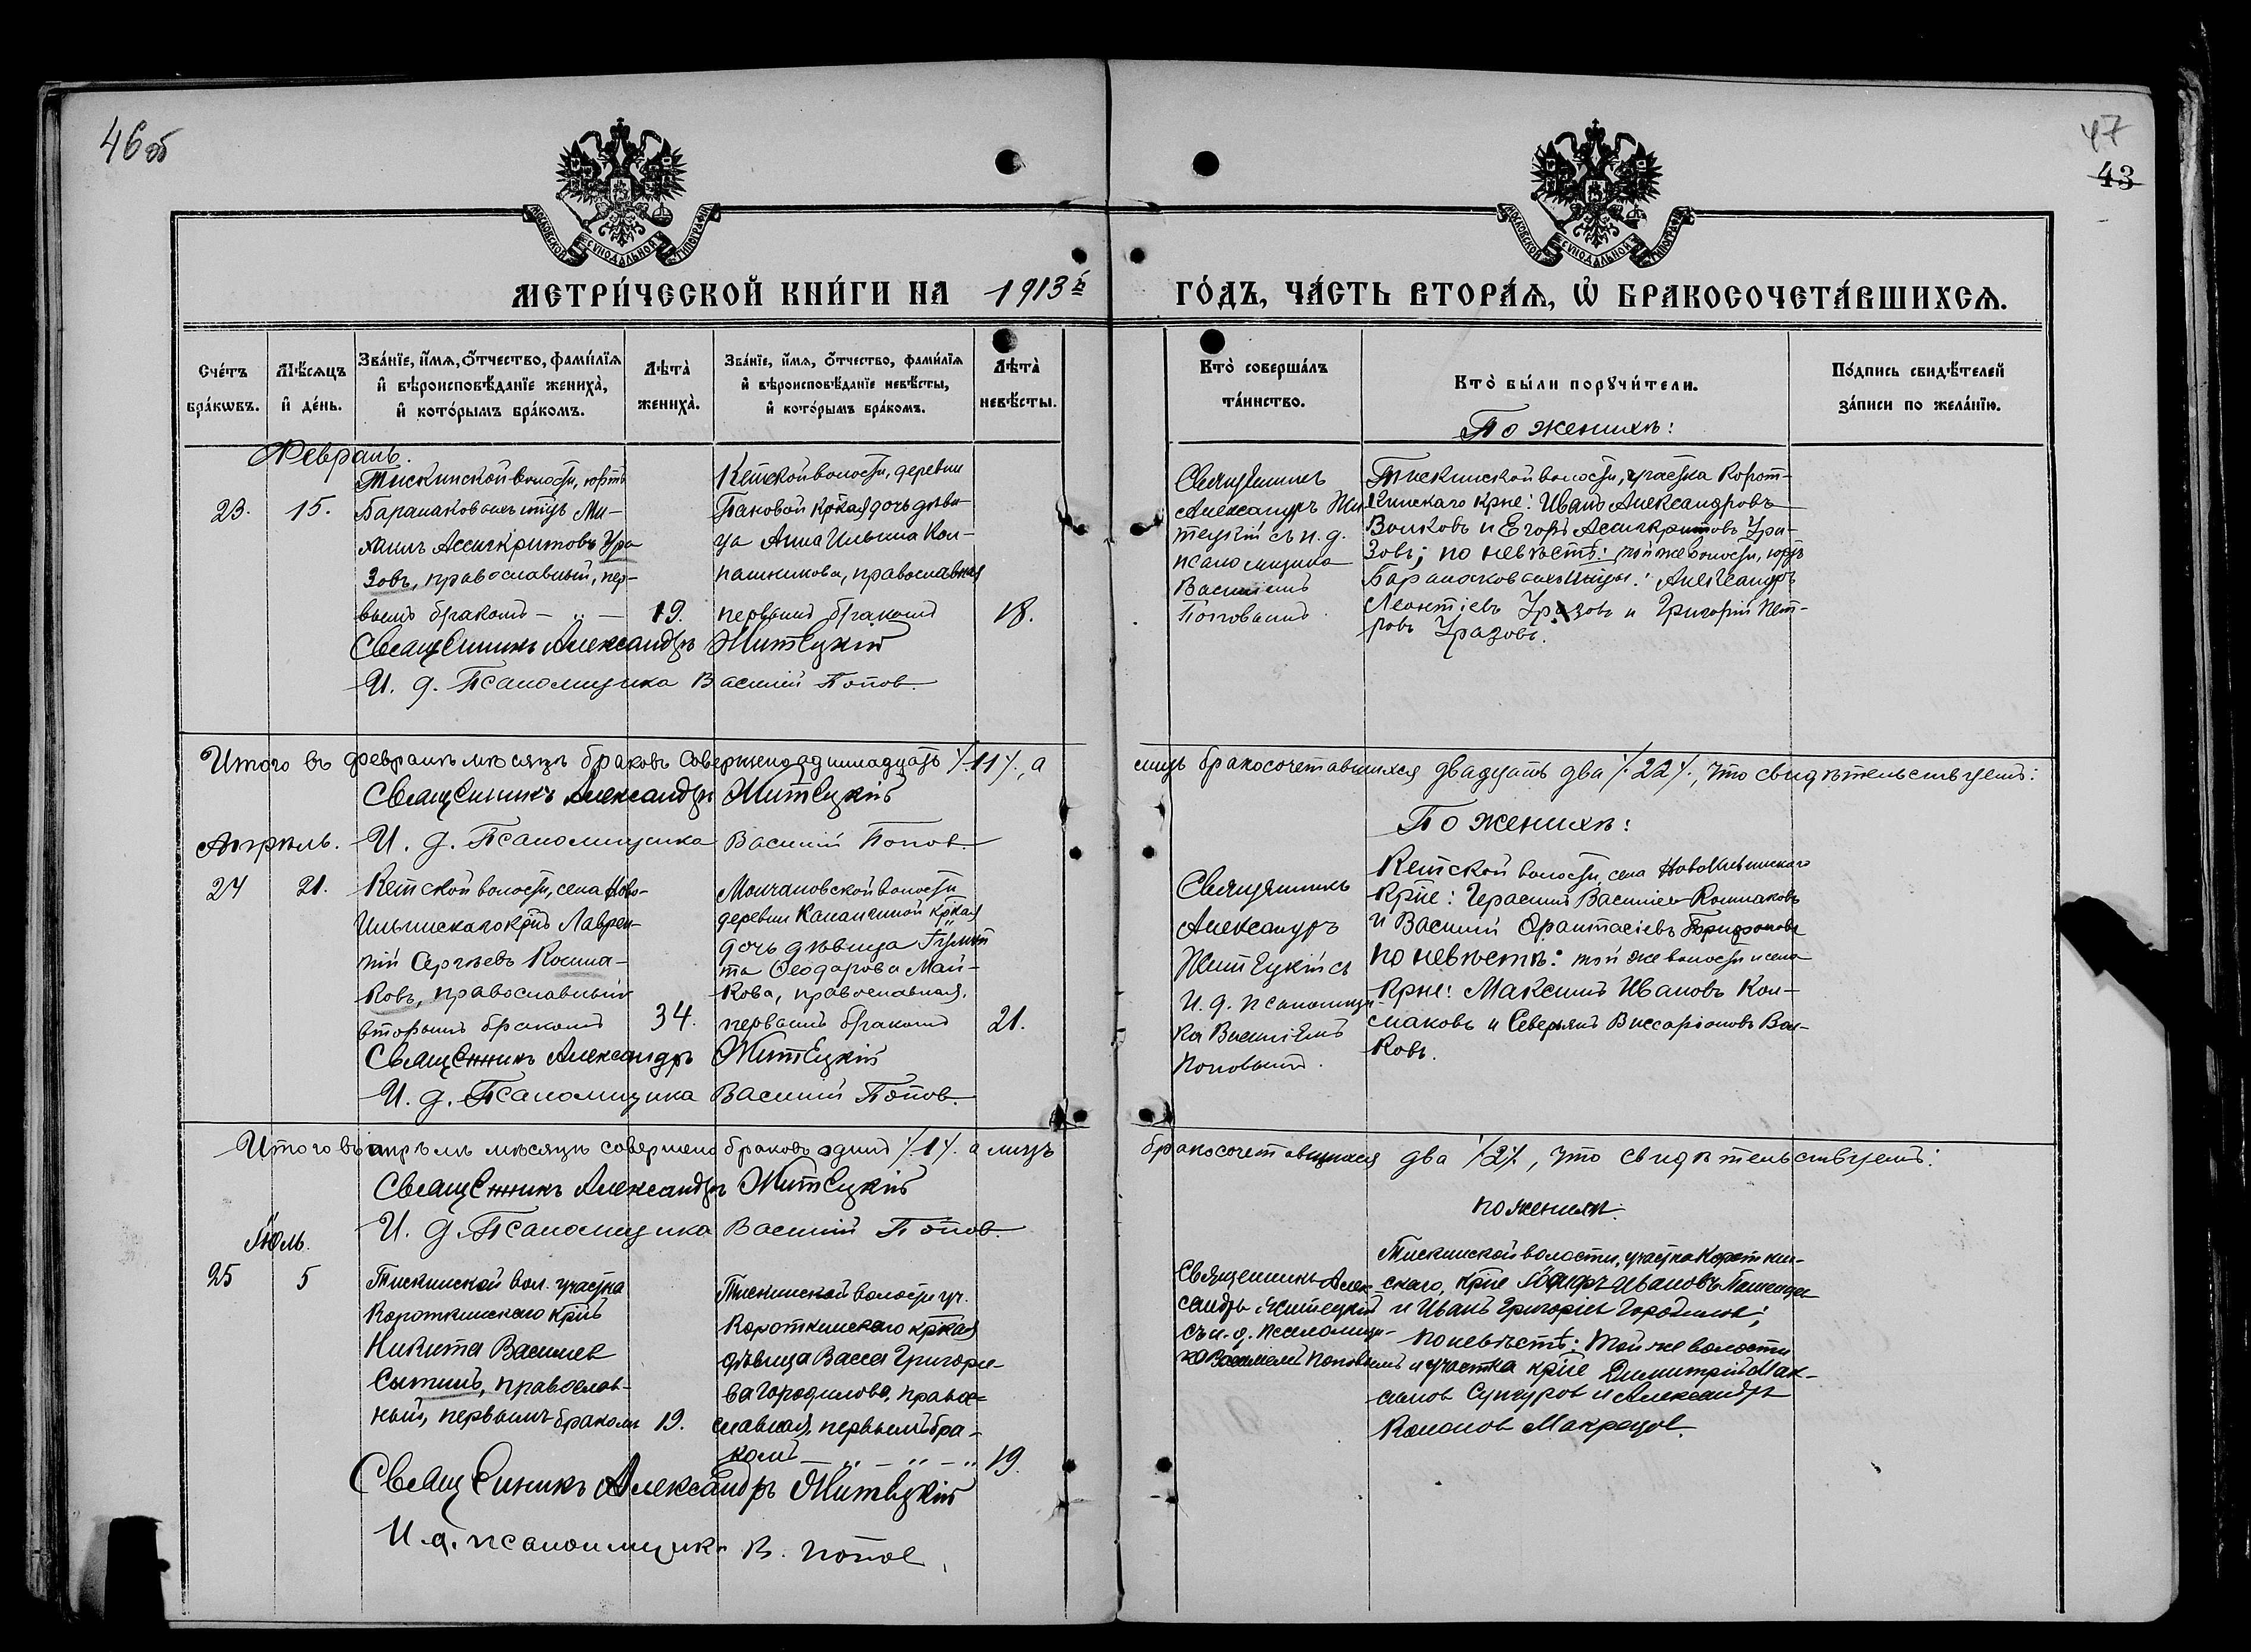 46 об
47
43
МОСКОВСКОЙ СѴНОДАЛЬНОЙ ТИПОГРАФІИ
МОСКОВСКОЙ СѴНОДАЛЬНОЙ ТИПОГРАФІИ
МЕТРИ́ЧЕСКОЙ КНИ́ГИ НА 1913й ГО́ДЪ, ЧА́СТЬ ВТОРА́Ѧ, Ѡ҆ БРАКОСОЧЕТА́ВШИХСѦ.
Сче́тъ бра́кѡвъ.
Мѣ́сѧцъ и҆ де́нь.
Зва́нїе, и҆́мѧ, ѻ҆́тчество, фами́лїѧ
и҆ вѣроисповѣ́данїе жениха̀,
и҆ кото́рымъ бра́комъ.
Лѣ́та̀ жениха̀.
Зва́нїе, и҆́мѧ, ѻ҆́тчество, фами́лїѧ
и҆ вѣроисповѣ́данїе невѣ́сты,
и҆ кото́рымъ бра́комъ.
Лѣ́та̀ невѣ́сты.
Кто̀ соверша́лъ
та́инство.
Кто̀ бы́ли порꙋчи́тели.
По́дпись свидѣ́телей
за́писи по жела́нїю.
По женихѣ:
Февраль.
23.
15.
Тискинской волости, юртъ
Барамаковскихъ инор. Ми-
хаилъ Ассигкритовъ Ура
зовъ, православный, пер-
вымъ бракомъ — „ —
19.
Кетской волости, деревни
Пановой кр̃кая дочь дѣви-
ца Анна Ильина Кол-
пашникова, православная
первымъ бракомъ
18.
Священникъ
Александръ Жи
тецкій съ и. д.
псаломщика
Василіемъ
Поповымъ.
Тискинской волости, участка Корот-
кинскаго кр̃не: Иванъ Александровъ
Волковъ и Егоръ Ассигкритовъ Ура-
зовъ; по невѣстѣ: той же волости, юртъ
Александръ
Леонтіевъ Уразовъ и Григорій Пет-
ровъ Уразовъ.
Священникъ Александръ Житецкій
И. д. Псаломщика Василій Попов.
Итого въ февралѣ мѣсяцѣ браковъ совершено одиннадцать /.11./, а лицъ бракосочетавшихся двадцать два /.22./, что свидѣтельствуемъ:
Священникъ Александръ Житецкій
И. д. Псаломщика Василій Попов.
Апрѣль.
По женихѣ:
24
21.
Кетской волости, села Ново-
Ильинскаго кр̃нъ Лаврен-
тій Сергѣевъ Колма-
ковъ, православный
вторымъ бракомъ
34.
Молчановской волости
деревни кр̃кая
дочь дѣвица
Ѳеодорова Май-
кова, православная,
первымъ бракомъ
21.
Священникъ
Александръ
Житецкій съ
и. д. псаломщи-
ка Василіемъ
Поповымъ.
Кетской волости, села НовоИльинскаго
кр̃не: Герасимъ Василіев Колмаковъ
и Василій
по невѣстѣ: той же волости и села
кр̃не: Максимъ Ивановъ Кол-
маковъ и Северьянъ Виссаріоновъ Вол-
ковъ.
Священникъ Александръ Житецкій
И. д. Псаломщика Василій Попов.
Итого въ апрѣлѣ мѣсяцѣ совершено браковъ одинъ /.1./. а лицъ бракосочетавшихся два /.2./, что свидѣтельствуемъ:
Священникъ Александръ Житецкій
И. д. Псаломщика Василій Попов.
Іюль.
по женихѣ.
25
5
Тискинской вол. участка
Короткинскаго кр̃нъ
Никита Василиев
Сытинъ, православ-
ный, первымъ бракомъ
19.
Тискинской волости уч.
Короткинскаго кр̃кая
дѣвица Васса Григорие-
ва Городилова, право-
славная, первымъ бра-
комъ — „ — „ — „
19.
Священникъ Алек-
сандръ Житецкій
съ и. д. псаломщи-
ка Василіемъ Поповымъ
Тискинской волости, участка Короткин-
скаго, кр̃не Ивановъ
и Иванъ Григориев Городилов;
по невѣстѣ: Той же волости
и участка кр̃не Димитрій Мак-
симов и Александръ
Священникъ Александръ Житецкій
И. д. псаломщика В. Попов.